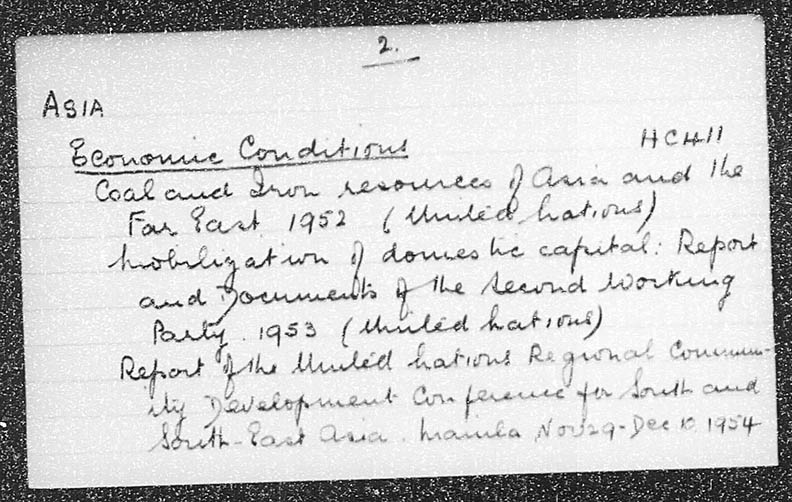 2.
ASIA
Economic Conditions HC411
Coal and Iron resources of Asia and the
Far East 1952 (United Nations)
Mobilization of domestic capital: Report
and Documents of the Second Working
Party. 1953 (United Nations)
Report of the United Nations Regional Commun-
ity Development Conference for South and
South-East Asia. Manila, Nov 29-Dec 10, 1954